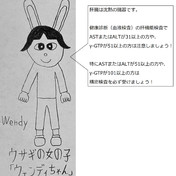 肝臓は沈黙の臓器です。
健康診断（血液検査）の肝機能検査で
ASTまたはALTが31以上の方や、
γ-GTPが51以上の方は注意しましょう！
特にASTまたはALTが51以上の方や、
γ-GTPが101以上の方は
精密検査を必ず受けましょう！
Wendy
ウサギの女の子
「ウェンディちゃん」